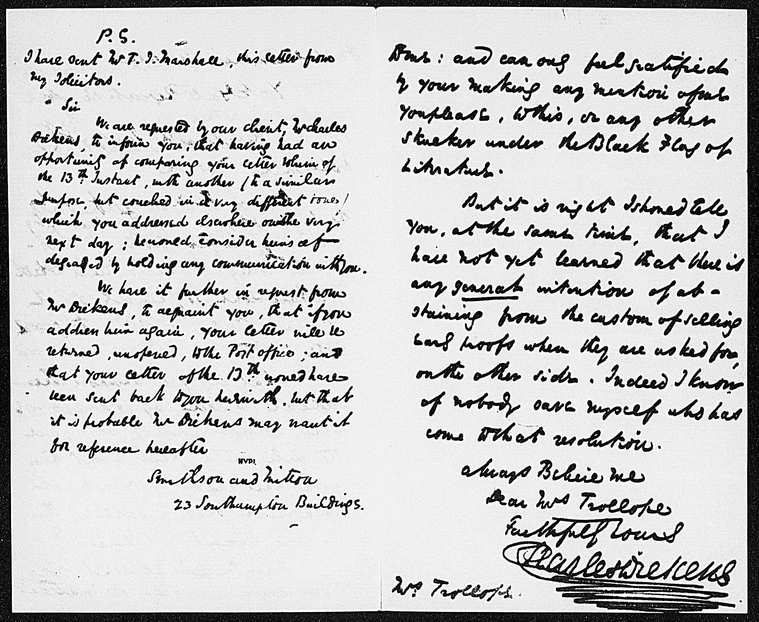 P.S.
I have sent Mr T. J. Marshall, this letter from
my Solicitors.
"Sir
We are requested by our client, Mr Charles
Dickens, to inform you, that having had an
opportunity of comparing your letter to him of
the 13th Instant, with another (to a similar
purpose but couched in a very different tone)
which you addressed elsewhere on the very
next day; he would consider himself
degraded by holding any communication with you.
We have it further in request from
Mr Dickens, to acquaint you, that if you
address him again, your letter will be
returned, unopened, to the Post office; and
that your letter of the 13th would have
been sent back to you herewith, but that
it is probable Mr Dickens may want it
for reference hereafter
Smithson and Mitton
23 Southampton Buildings.
time: and can only feel gratified
by your making any mention of me
you please, to this, or any other
Skulker under the Black Flag of
Literature.
But it is right I should tell
you, at the same time, that I
have not yet learned that there is
any general intention of ab-
staining from the custom of selling
early proofs when they are asked for,
on the other side. Indeed I know
of nobody save myself who has
come to that resolution.
always Believe me
Dear Mrs Trollope
Faithfully Yours
Charles Dickens
Mrs Trollope.